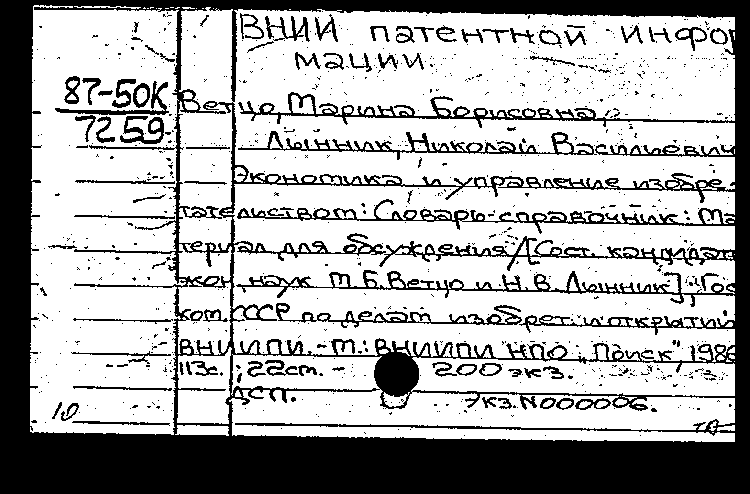 ВНИИ патентной инфор
мации.
87-50К
7259
Ветцо, Марина Борисовна,
Лынник, Николай Васильевич
Экономика и управление изобре-
тательством: Словарь-справочник: Ма
териал для обсуждения/[Сост. кандидат
экон. наук М.Б.Ветцо и Н.В.Лынник]; Гос
ком. СССР по делам изобрет. и открытий
ВНИИПИ. - М.: ВНИИПИ НПО „Поиск", 1986
113с.; 22см. - 200 экз.
ДСП. Экз.N000006.
10